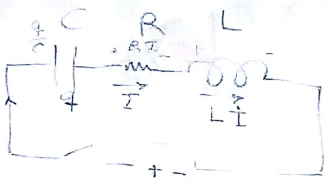 C R L
q/c RI
I L İ
+ -